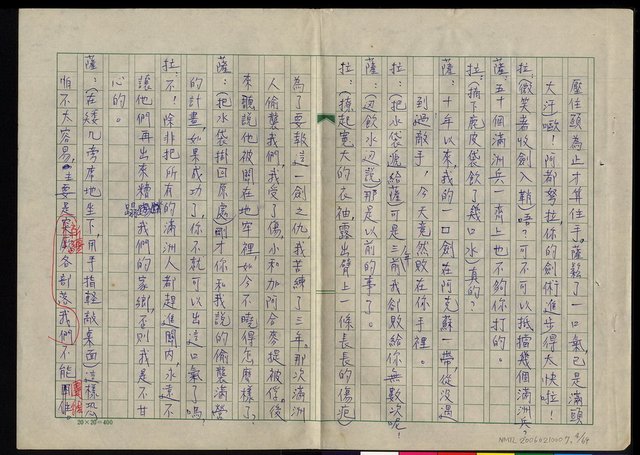 壓住頭為止才算住手。薩鬆了一口氣,已是滿頭
大汗)噉!阿都努拉,你的劍術進步得太快啦!
拉:(微笑着收劍入鞘)唔?可不可以抵擋幾個滿洲兵?
薩:五十個滿洲兵一齊上也不夠你打的。
拉:(摘下鹿皮袋飲了幾口水)真的?
薩:十年以來,我的一口劍在阿克蘇一帶,從沒遇
到過敵手,今天竟然敗在你手裡。
拉:(把水袋遞給薩)可是三年前我劍敗給你無數次呢!
薩:(邊飲水邊說)那是以前的事了。
拉:(撩起寬大的衣袖,露出臂上一條長長的傷疤)
為了要報這一劍之仇,我苦練了三年。那次滿洲
人偷襲我們,我受了傷,小和加阿合麥提被俘。後
來聽說他被關在地牢裡,如今不曉得怎麼樣了?
薩:(把水袋掛回原處)剛才你和我說的偷襲滿營
的計畫如果成功了,你不就可以出這口氣了嗎?
拉:不!除非把所有的滿洲人都趕進關內,永遠不
讓他們再出來糟蹋我們的家鄉,否則我是不甘
心的。
薩:(在矮几旁席地坐下,用手指輕敲桌面)這樣恐
怕不大容易,主要是各部落我們不能團結。
20×20=400
NMTL 20060210007, 4/64